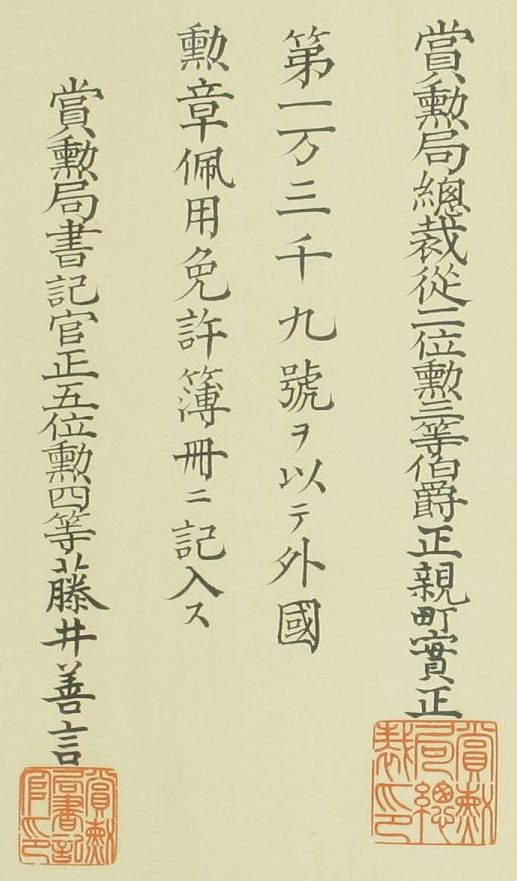 賞勲局總裁從二位勲三等伯爵正親町實正
賞勲局總裁之印
第一万三千九號ヲ以テ外國
勲章佩用免許簿冊ニ記入ス
賞勲局書記官正五位勲四等藤井善言
賞勲局書記官印